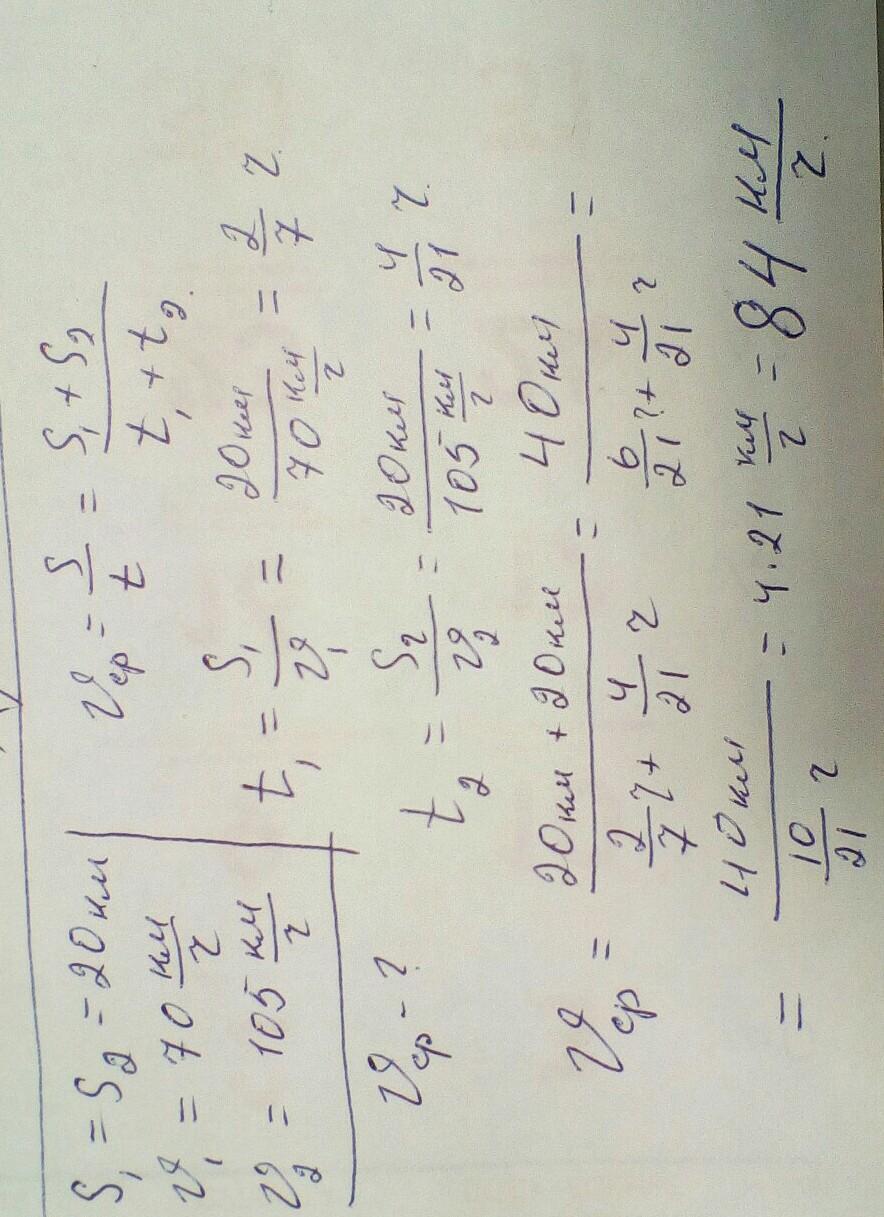 S₁ = S₂ = 20 км
v₁ = 70 км/ч
v₂ = 105 км/ч
vср - ?
vср = S/t = (S₁ + S₂)/(t₁ + t₂).
t₁ = S₁/v₁ = 20 км/70 км/ч = 2/7 ч.
t₂ = S₂/v₂ = 20 км/105 км/ч = 4/21 ч.
vср = (20 км + 20 км)/(2/7 ч + 4/21 ч) = 40 км/(6/21 ч + 4/21 ч) =
= 40 км/(10/21 ч) = 4·21 км/ч = 84 км/ч.